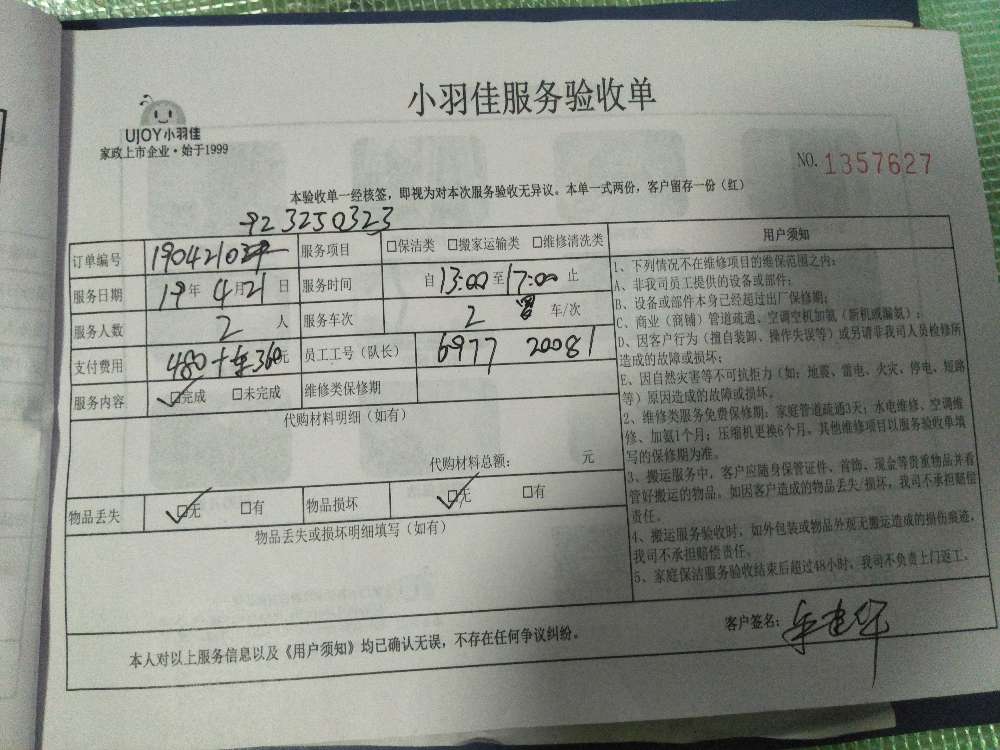 小羽佳服务验收单
UJOY小羽佳
家政上市企业·始于1999
NO. 1357627
本验收单一经核签，即视为对本次服务验收无异议。本单一式两份，客户留存一份（红）
923250323
订单编号 190421 服务项目 □保洁类 □搬家运输类 □维修清洗类
服务日期 19年 4月21日 服务时间 自13:00至17:00止
服务人数 2 人 服务车次 2 车/次
支付费用 480+ 360元 员工工号（队长） 6977 20081
服务内容 ☑完成 □未完成 维修类保修期
代购材料明细（如有）
代购材料总额： 元
物品丢失 ☑无 □有 物品损坏 ☑无 □有
物品丢失或损坏明细填写（如有）
用户须知
1、下列情况不在维修项目的维保范围之内：
A、非我司员工提供的设备或部件；
B、设备或部件本身已经超过出厂保修期；
C、商业（商铺）管道疏通、空调空机加氨（新机或漏氨）；
D、因客户行为（擅自装卸、操作失误等）或另请非我司人员检修所
造成的故障或损坏；
E、因自然灾害等不可抗拒力（如：地震、雷电、火灾、停电、短路
等）原因造成的故障或损坏。
2、维修类服务免费保修期：家庭管道疏通3天；水电维修、空调维
修、加氨1个月；压缩机更换6个月。其他维修项目以服务验收单填
写的保修期为准。
3、搬运服务中，客户应随身保管证件、首饰、现金等贵重物品并看
管好搬运的物品。如因客户造成的物品丢失/损坏，我司不承担赔偿
责任。
4、搬运服务验收时，如外包装或物品外观无搬运造成的损伤痕迹，
我司不承担赔偿责任。
5、家庭保洁服务验收结束后超过48小时，我司不负责上门返工。
本人对以上服务信息以及《用户须知》均已确认无误，不存在任何争议纠纷。
客户签名：